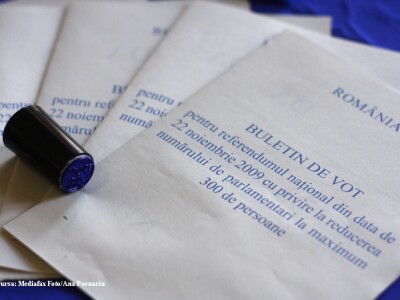 ROMÂNIA
BULETIN DE VOT
pentru referendumul național din data de
22 noiembrie 2009 cu privire la reducerea
numărului de parlamentari la maximum
300 de persoane
pentru
22 noiembrie
număru
BU
pentru refe
22 noiemb
număr
Sursa: Mediafax Foto/Ana Poenariu